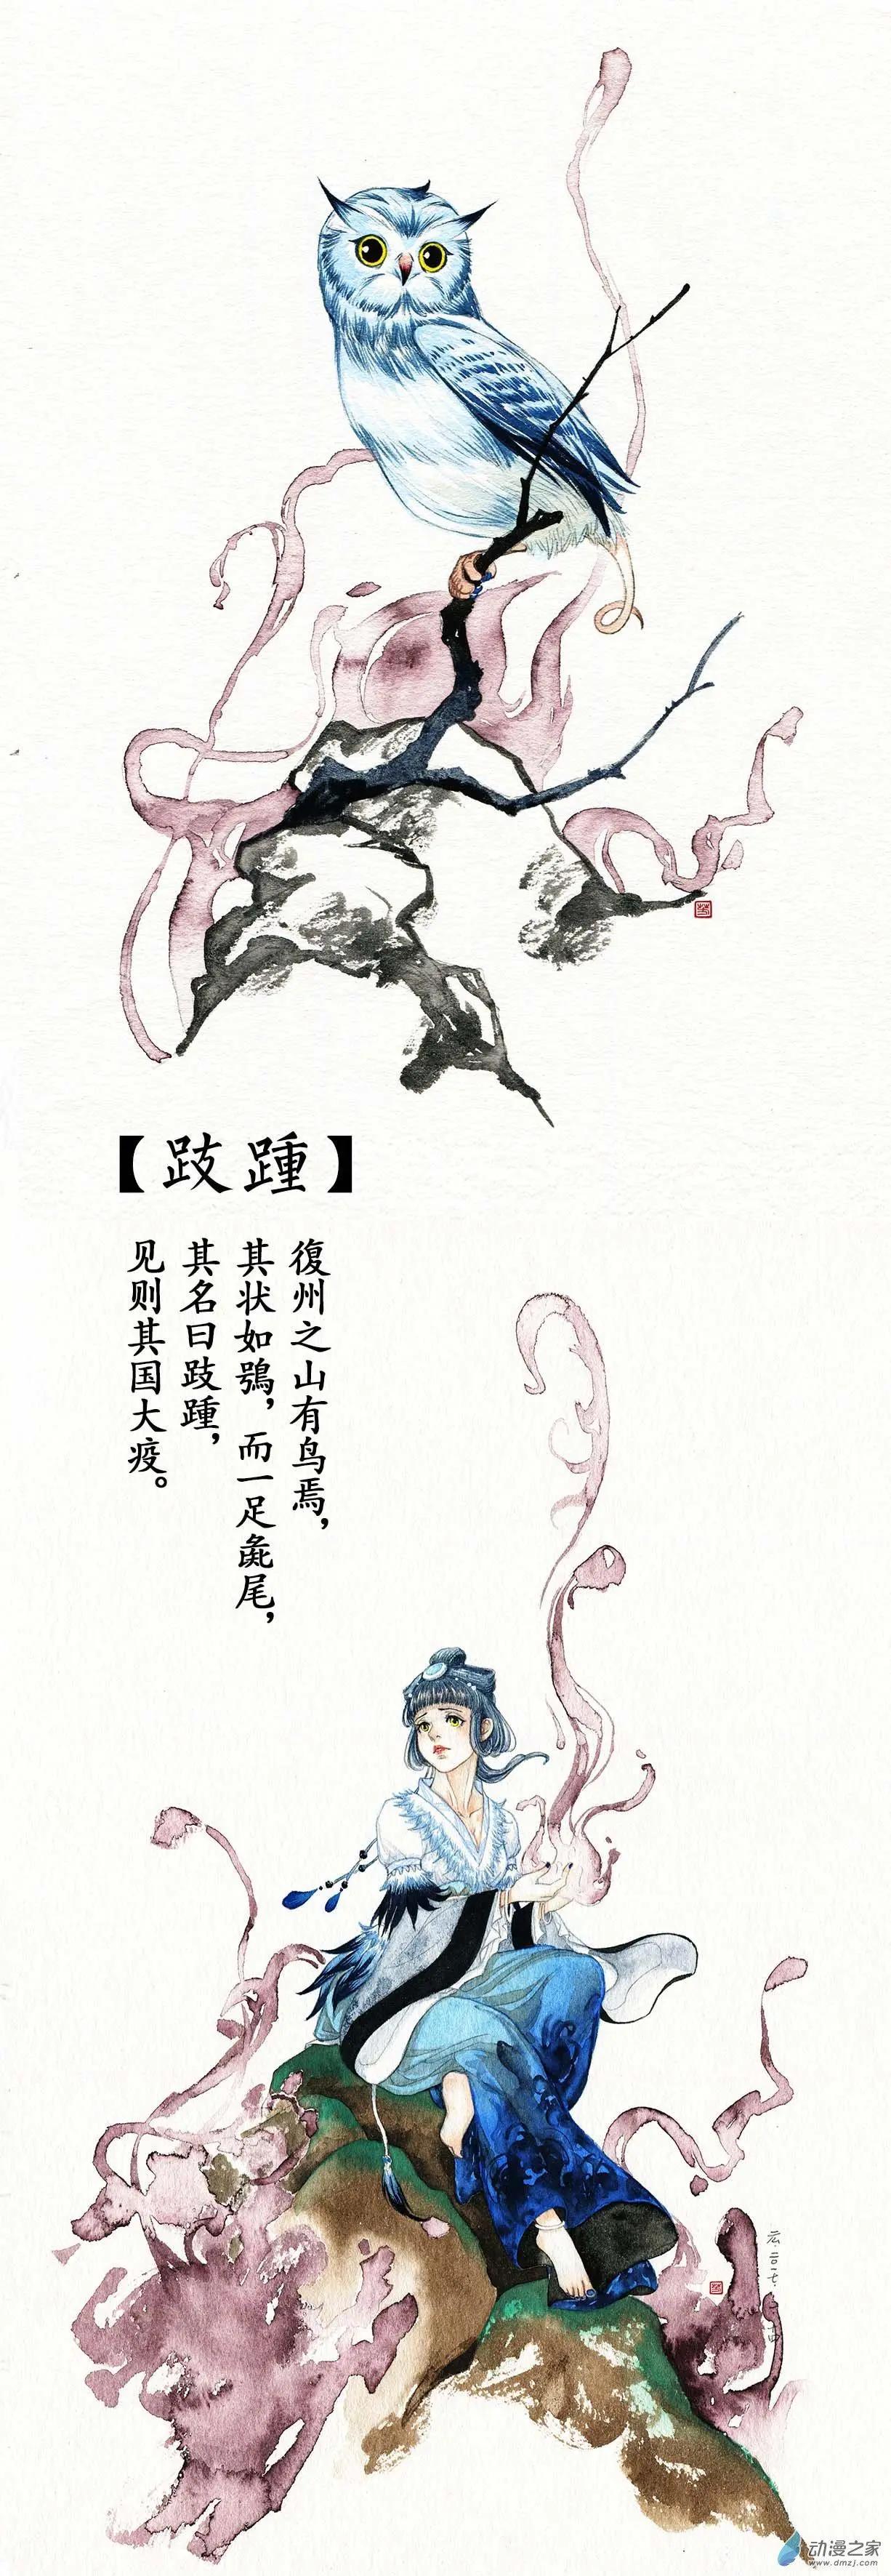 【跂踵】
復州之山有鸟焉，
其状如鴞，而一足彘尾，
其名曰跂踵，
见则其国大疫。
二〇一七.
动漫之家
www.dmzj.com